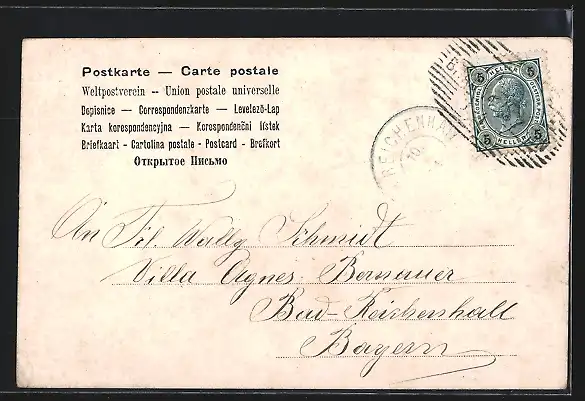 Postkarte — Carte postale
Weltpostverein -- Union postale universelle
Dopisnice — Correspondenzkarte — Levelező-Lap
Karta korespondencyjna — Korespondenční lístek
Briefkaart - Cartolina postale - Postcard - Brefkort
Открытое Письмо
5 HELLER 5
5 HELLER 5
REICHENHALL
An Frl. Wally Schmidt
Villa Agnes Bernauer
Bad-Reichenhall
Bayern